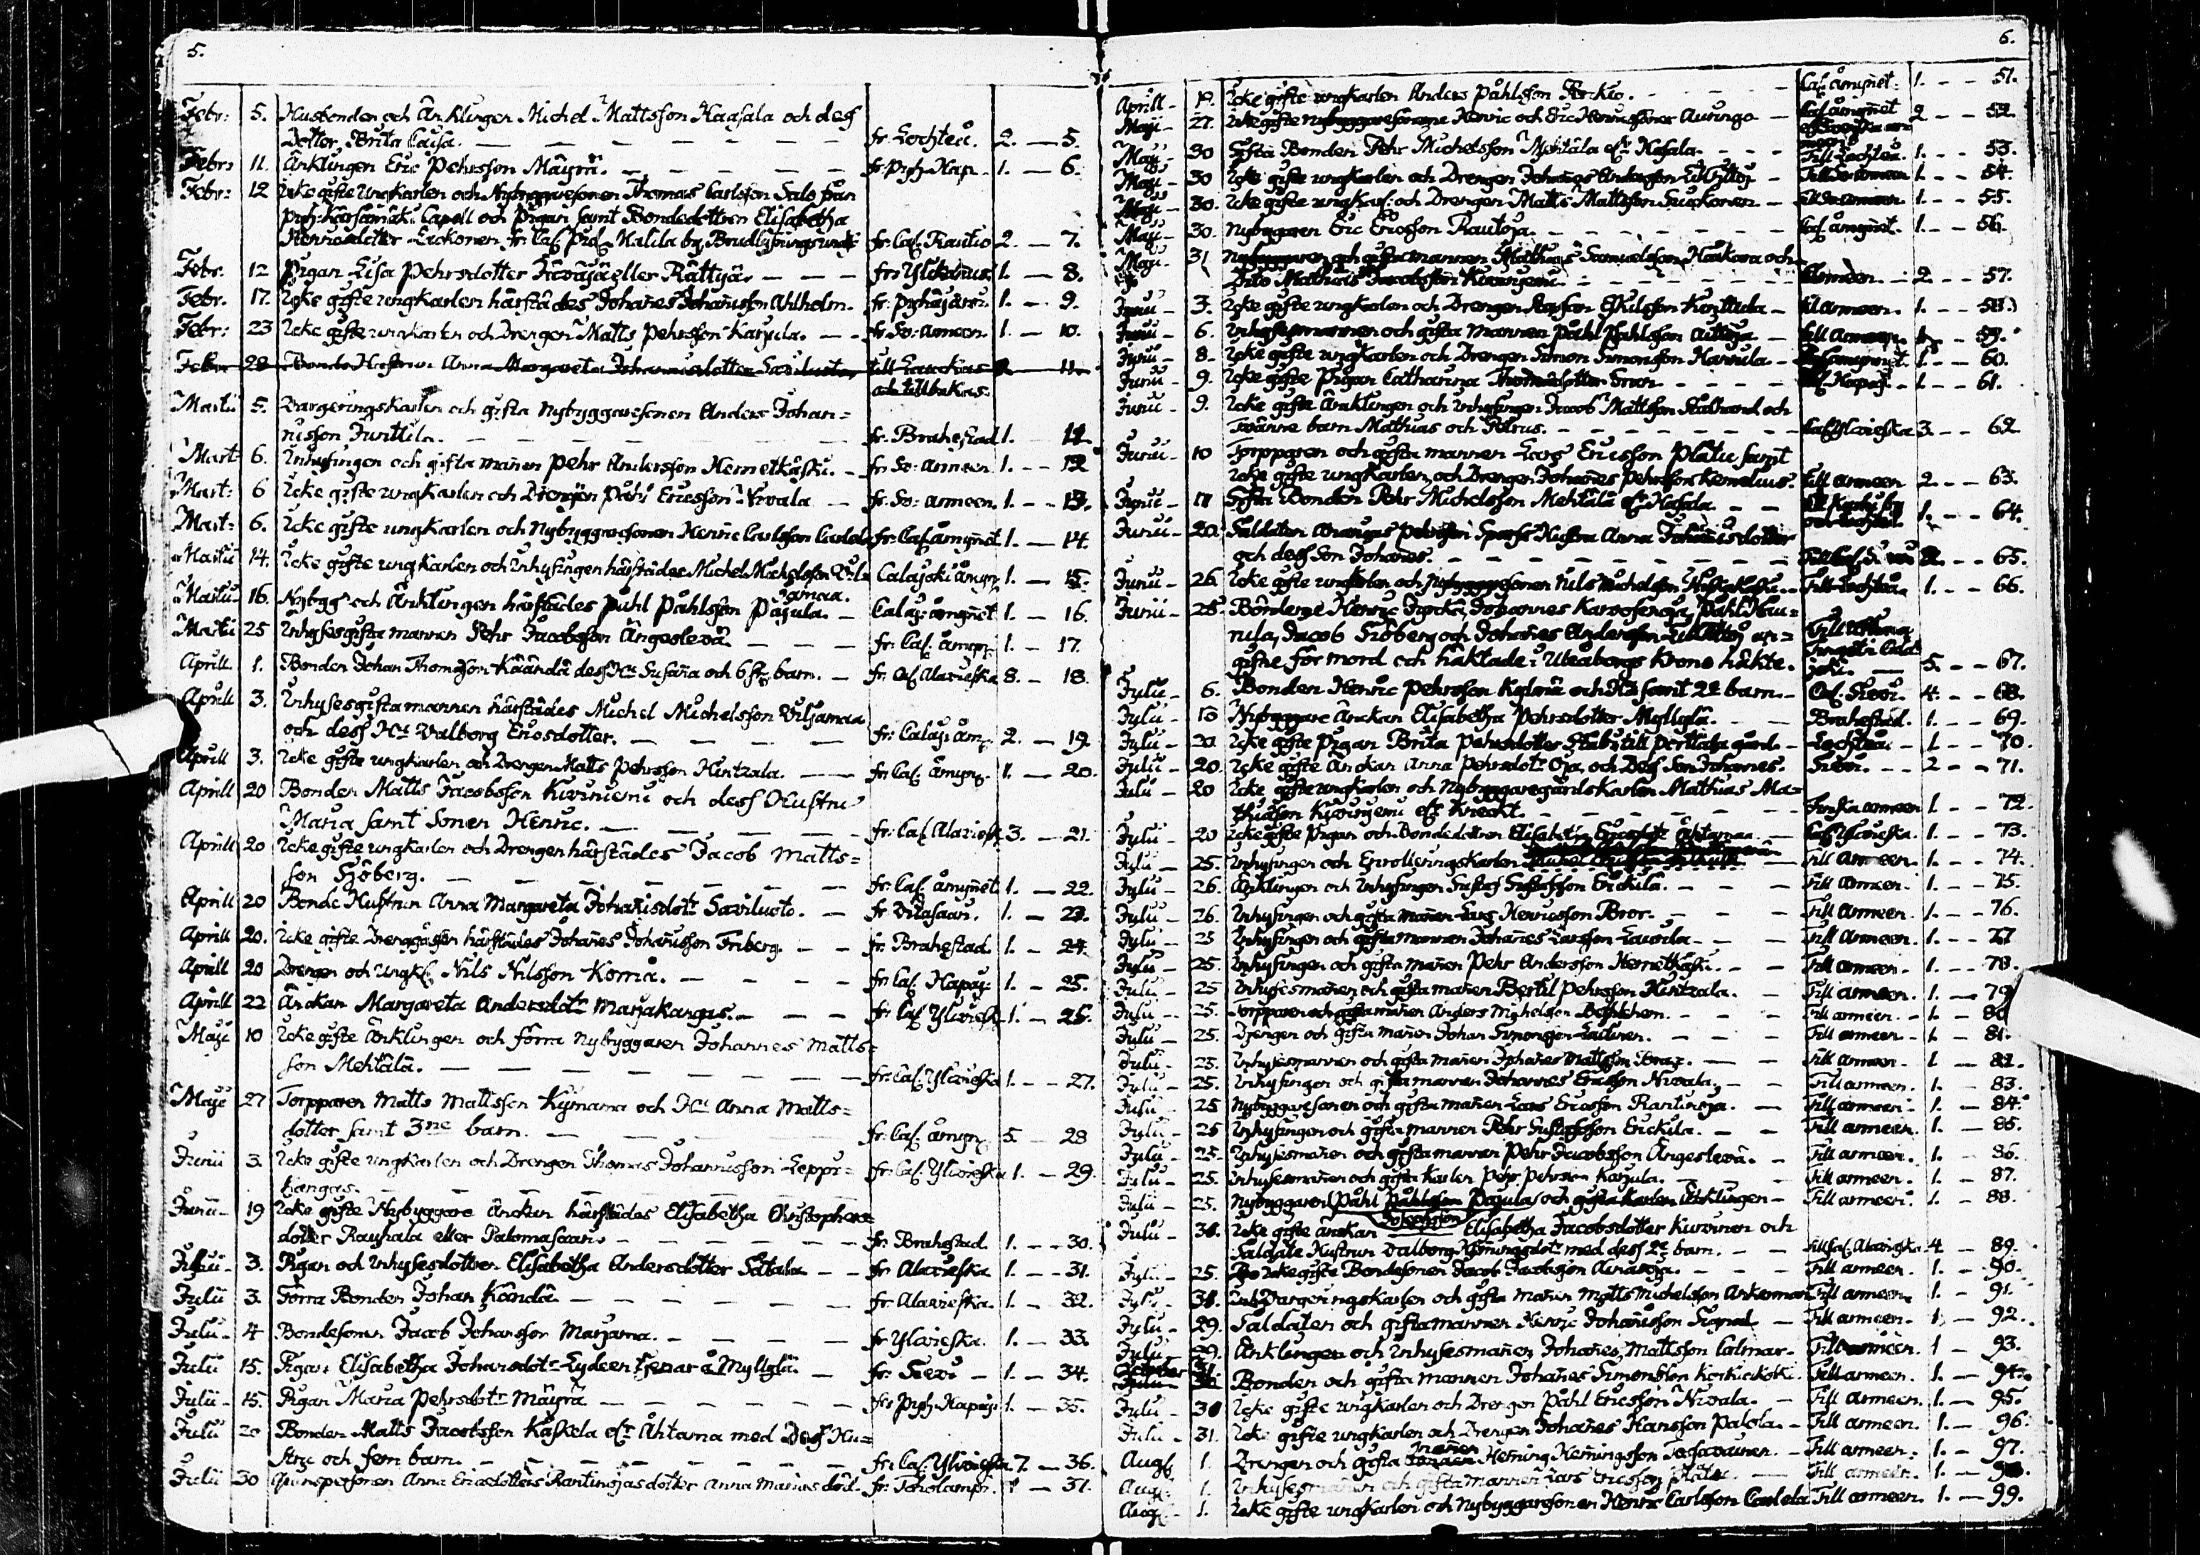 5.
Febr: 5. Husbonden och Änklingen Michel Mattsson Haasala och dess
Dotter Brita Caisa. fr. Lochteå. 2. 5.
Febr: 11. Änklingen Eric Pehrsson Mäyrä. fr. Prgh. Hap. 1. 6.
Febr: 12 Icke gifte Ungkarlen och Nybyggaresonen Thomas Carlsson Salo från
Prgh. Kärsämäki Capell och Pigan samt Bondedottren Elisabetha
Henricsdotter Leckonen fr. Cap. Kalila by, fr. Cap. Rautio 2. 7.
Febr. 12 Pigan Lisa Pehrsdotter eller Rättyä. fr. Ylikanus. 1. 8.
Febr. 17. Icke gifte ungkarlen härstädes Johañes Johañisson Ahlholm. fr. 1. 9.
Febr: 23 Icke gifte ungkarlen och Drengen Matts Pehrsson Karjula. fr. So: armeen. 1. 10.
Febr. 28 Bonde Hustrun Anna Margareta Johannisdotter Saviluoto till
och tillbakas. 11.
Martii 5. Vargeringskarlen och gifta Nybyggaresonen Anders Johan=
nisson Junttila. fr. Brahestad 1. 11
Mart: 6. Inhysingen och gifta mañen Pehr Andersson Hernetkåski. fr. So: armeen. 1. 12
Mart: 6 Icke gifte ungkarlen och Drengen Påhl Ericsson Nivala fr. So: armeen. 1. 13.
Mart: 6. Icke gifte ungkarlen och Nybyggaresonen Henric Carlsson Carlela fr. Cap. åmynet 1. 14.
Martii 14. Icke gifte ungkarlen och Inhysingen härstädes Michel Michelsson Vil=
jamaa. Calajoki åmyn. 1. 15.
Martii 16. Nybygg och Änklingen härstädes Påhl Påhlsson Pajula. Calaj: åmynet 1. 16.
Martii 25 Inhyses gifta mannen Pehr Jacobsson Ängeslevä fr. Cal. åmyn. 1. 17.
Aprill 1. Bonden Johan Thomasson Käändä dess Hu Susaña och 6 st barn. fr. Cap. Alavieska 8. 18.
Aprill 3. Inhyses gifta mannen härstädes Michel Michelsson Viljamaa
och dess Hu Valborg Ericsdotter. fr. Calaj: åm. 2. 19.
Aprill 3. Icke gifte ungkarlen och Drengen Matts Pehrsson Hintzala. fr. Cal. åmyn. 1. 20.
Aprill 20 Bonden Matts Jacobsson Kiviniemi och dess Hustru
Maria samt Sonen Henric. fr. Cap. Alaviesk. 3. 21.
Aprill 20 Icke gifte ungkarlen och Drengen härstädes Jacob Matts=
son Sjöberg. fr. Cal. åmyñet 1. 22.
Aprill 20 Bonde Hustrun Anna Margareta Johañisdotr Saviluoto. fr. Vitasaari. 1. 23.
Aprill 20. Icke gifte Drenggåssen härstädes Johañes Johañsson Friberg. fr. Brahestad. 1. 24.
Aprill 20 Drengen och Ungk. Nils Nilsson Korria. fr. Cap. Hapaj: 1. 25.
Aprill 22 Änckan Margareta Andersdotr Marjakangas. fr. Cap. Yliviesk. 1. 26.
Maje 10 Icke gifte Änklingen och förra Nybyggaren Johannes Matts=
son Mehtälä. fr. Cap. Ylivieska 1. 27.
Maje 27 Torpparen Matts Mattsson Kijmama och Hu Anna Matts=
dotter samt 3ne barn. fr. Cal. åmyn. 5. 28
Junii 3. Icke gifte ungkarlen och Drengen Thomas Johannisson Leppi=
kangas. fr. Cap. Ylivieska 1. 29.
Junii 19 Icke gifte Nybyggare änckan härstädes Elisabetha Christophers
dotter Rauhala eller Palomasaari. fr. Brahestad. 1. 30.
Julii 3. Pigan och Inhysesdottren Elisabetha Andersdotter Satala fr. Alavieska 1. 31.
Julii 3. Förra Bonden Johan Köndä fr. Alavieska. 1. 32.
Julii 4 Bondesonen Jacob Johansson Marjama. fr. Ylivieska. 1. 33.
Julii 15. Pigan Elisabetha Johansdotr Lydeen tjenar å Myllylä. fr. Sievi 1. 34.
Julii 15. Pigan Maria Pehrsdotr Mäyrä fr. Prgh. Hapaj: 1. 35.
Julii 20 Bonden Matts Jacobsson Käskela ellr Ahtama med Dess Hu=
stru och fem barn. fr. Cap. Ylivieska 7. 36.
Julii 30 Qvinspersonen Anna Ericsdotters Rantinojas dotter Anna Marias död. fr. Toholampi. 1. 37.
6.
Aprill 19. Icke gifte ungkarlen Anders Påhlsson Cal. åmyñet. 1. 51.
Maji 27. Icke gifte Henric och Eric Henricssöner Auringo Cal. åmyñet 2 52.
Maji 30 Gifta Bonden Pehr Michelsson Mehtälä ellr Hasala. Till Lochteå. 1. 53.
Maji 30 Icke gifte ungkarlen och Drengen Johañes Andersson Till So: armeen 1 54.
Maji 30. Icke gifte ungkarl: och Drengen Matts Mattsson till So: armeen 1 55.
Maji 30. Nybyggaren Eric Ericsson Rautoja. Cal. åmyñet. 1 56.
Maji 31 Nybyggaren och gifta mannen Mathias Samuelsson och
Mathias Jacobsson Kiviniemi. Armeen 2 57.
Junii 3. Icke gifte ungkarlen och Drengen Staffan Eskilsson Kontiala till Armeen. 1. 58.
Junii 6. Inhysesmannen och gifta mannen Påhl Påhlsson till Armeen 1 59.
Junii 8. Icke gifte ungkarlen och Drengen Simon Simonsson Harjula 1. 60.
Junii 9. Icke gifte Pigan Catharina Thomasdotter 1. 61.
Junii 9. Icke gifte Änklingen och Inhysingen Jacob Mattsson Stålhand och
Tvänne barn Mathias och Petrus. Cap. Ylivieska 3. 62
Junii 10 Torpparen och gifta mannen Lars Ericsson Platu samt
Icke gifte ungkarlen och Drengen Johañes Pehrsson Till Armeen 2. 63.
Junii 17 Gifta Bonden Pehr Michelsson Mehtälä ellr Hasala 1. 64.
Junii 20. Soldaten Pehrsson Sparfs Hustru Anna Johañisdotter
och dess Son Johañes. 2. 65.
Junii 26. Icke gifte ungkarlen och Nybyggaresonen Nils Michelsson Till Lochteå. 1. 66.
Junii 28. Bönderne Henric Johannes Karvosenoja, Påhl Hau=
nula, Jacob Sjöberg och Johañes Andersson an=
gifne för mord och häktade i Uleåborgs Krono häkte. 5. 67.
Julii 6. Bonden Henric Pehrsson och Hu samt 2 barn. Cap. Sievi. 4. 68.
Julii 10 Nybyggare änckan Elisabetha Pehrsdotter Myllylä. Brahestad. 1. 69.
Julii 20. Icke gifte Pigan Brita Pehrsdotter till Perttala gård. Lochteå. 1. 70.
Julii 20. Icke gifte Änckan Anna Pehrsdotr Oja och Dess Son Johannes. Sievi. 2 71.
Julii 20 Icke gifte ungkarlen och Nybyggaregårdskarlen Mathias Ma=
thiasson Kiviniemi ellr Kneckt. armeen 1. 72.
Julii 20 Icke gifte Pigan och Bondedottren Elisabetha Ericsdotr Ahtamaa. Cap. Ylivieska. 1. 73.
Julii 25. Inhysingen och Enrolleringskarlen Till Armeen 1. 74.
Julii 26. Änklingen och Inhysingen Gustaf Gustafsson Erickilä. Till armeen. 1. 75.
Julii 26. Inhysingen och gifta mañen Lars Henricsson Bror. Till armeen. 1. 76.
Julii 25 Inhysingen och gifta mannen Johañes Larsson Till Armeen. 1. 77
Julii 25. Inhysingen och gifta mañen Pehr Andersson Hernetkåski. Till Armeen. 1. 78.
Julii 25 Inhysesmañen och gifta mañen Bertil Pehrsson Hintzala. Till armeen. 1. 79
Julii 25. Torpparen och gifta mañen Anders Michelson Bethlehem. Till armeen. 1 80
Julii 25. Drengen och gifta mañen Johan Simonsson Till armeen 1 81.
Julii 25. Inhysesmannen och gifta mañen Johañes Mattsson Till Armeen 1 82.
Julii 25. Inhysingen och gifta mannen Johannes Ericsson Nivala. Till armeen. 1. 83.
Julii 25 Nybyggaresonen och gifta mañen Lars Ericsson Rantinoja. Till armeen. 1. 84.
Julii 25 Inhysingen och gifta mannen Pehr Gustafsson Erickila. Till armeen. 1. 85.
Julii 25. Inhysesmañen och gifta mannen Pehr Jacobsson Ängeslevä. Till armeen. 1. 86.
Julii 25. Inhysesmañen och gifta karlen Pehr Pehrsson Karjula. Till armeen. 1. 87.
Julii 25. Nybyggaren Påhl Påhlsson Pajula och gifta karlen Änklingen Till armeen. 1. 88.
Julii 31. Icke gifte änckan Elisabetha Jacobsdotter Kurvinen och
Soldate Hustrun Valborg med dess 2 barn. till Cap. Alavieska 4 89.
Julii 25. Icke gifte Bondesonen Jacob Jacobsson Till armeen. 1. 90.
Julii 31. Vargeringskarlen och gifta mañen Matts Michelsson Ankerman Till armeen. 1 91.
Julii 29. Soldaten och gifta mannen Henric Johañisson Signal Till armeen. 1 92.
Julii 29. Änklingen och Inhysesmañen Johañes Mattsson Calmar. Till armeen. 1 93.
Bonden och gifta mannen Johañes Simonsson Till armeen. 1. 94.
Julii 31 Icke gifte ungkarlen och Drengen Påhl Ericsson Nivala. Till Armeen. 1 95.
Julii 31. Icke gifte ungkarlen och Drengen Johañes Hansson Palola. Till armeen. 1 96.
Aug. 1. Drengen och gifta mañen Heming Hemingsson Till armeen. 1. 97.
Aug. 1. Inhysesmannen och gifta mannen Lars Ericsson Platu. Till armeen. 1. 98.
Aug. 1. Icke gifte ungkarlen och Nybyggaresonen Henric Carlsson Carlela Till armeen. 1. 99.